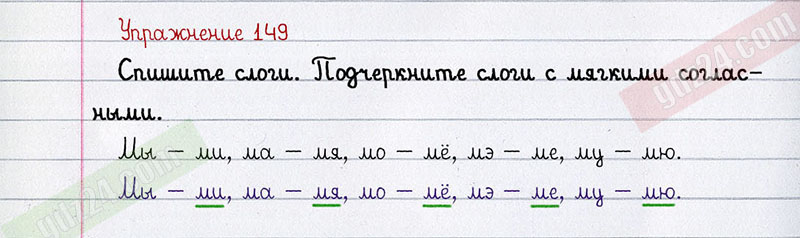 Упражнение 149
Спишите слоги. Подчеркните слоги с мягкими соглас-
ными.
Мы – ми, ма – мя, мо – мё, мэ – ме, му – мю.
Мы – ми, ма – мя, мо – мё, мэ – ме, му – мю.
gdz24.com
gdz24.com